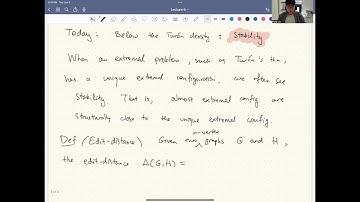 Today: Below the Turán density: Stability
When an extremal problem, such as Turán's thm,
has a unique extremal configuration, we often see
stability. That is, almost extremal config. are
structurally close to the unique extremal config.
Def (Edit-distance) Given two n-vertex graphs G and H,
the edit-distance Δ(G,H) =